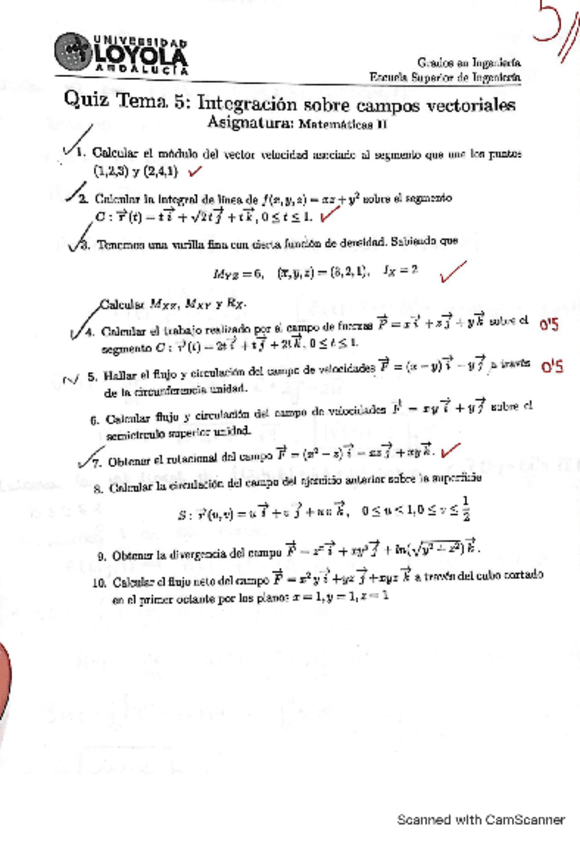 5
UNIVERSIDAD
LOYOLA
ANDALUCÍA
Grados en Ingeniería
Escuela Superior de Ingeniería
Quiz Tema 5: Integración sobre campos vectoriales
Asignatura: Matemáticas II
1. Calcular el módulo del vector velocidad asociado al segmento que une los puntos
(1,2,3) y (2,4,1)
2. Calcular la integral de línea de f(x, y, z) = xz + y² sobre el segmento
C : r⃗(t) = t i⃗ + √2t j⃗ + t k⃗, 0 ≤ t ≤ 1.
3. Tenemos una varilla fina con cierta función de densidad. Sabiendo que
M_YZ = 6, (x̄, ȳ, z̄) = (3, 2, 1), I_X = 2
Calcular M_XZ, M_XY y R_X.
4. Calcular el trabajo realizado por el campo de fuerzas F⃗ = x i⃗ + z j⃗ + y k⃗ sobre el 0'5
segmento C : r⃗(t) = 2t i⃗ + t j⃗ + 2t k⃗, 0 ≤ t ≤ 1.
5. Hallar el flujo y circulación del campo de velocidades F⃗ = (x − y) i⃗ − y j⃗ a través 0'5
de la circunferencia unidad.
6. Calcular flujo y circulación del campo de velocidades F⃗ = xy i⃗ + y j⃗ sobre el
semicírculo superior unidad.
7. Obtener el rotacional del campo F⃗ = (x² − z) i⃗ − xz j⃗ + xy k⃗.
8. Calcular la circulación del campo del ejercicio anterior sobre la superficie
S : r⃗(u, v) = u i⃗ + v j⃗ + uv k⃗, 0 ≤ u < 1, 0 ≤ v ≤ 1/2
9. Obtener la divergencia del campo
10. Calcular el flujo neto del campo F⃗ = x²y i⃗ + yz j⃗ + xyz k⃗ a través del cubo cortado
en el primer octante por los planos x = 1, y = 1, z = 1
Scanned with CamScanner